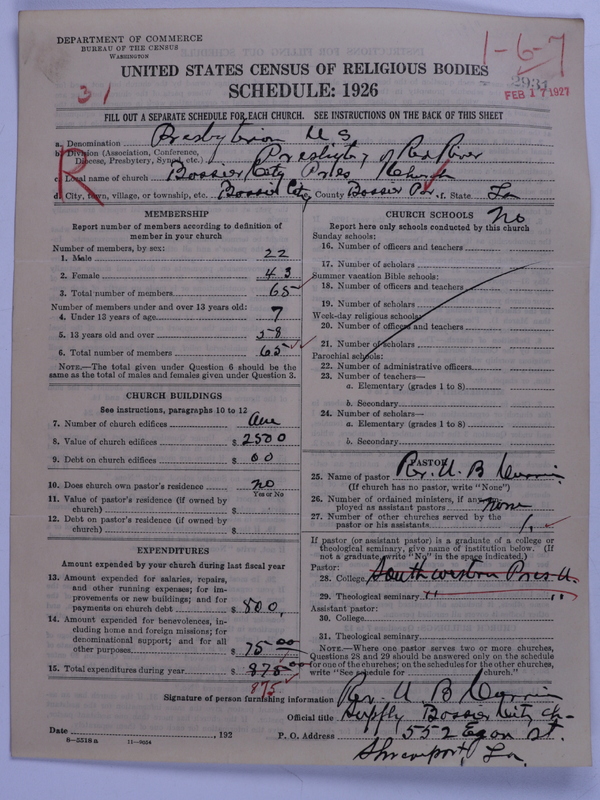 DEPARTMENT OF COMMERCE
BUREAU OF THE CENSUS
WASHINGTON
1-6-7
2934
FEB 17 1927
31
UNITED STATES CENSUS OF RELIGIOUS BODIES
SCHEDULE: 1926
FILL OUT A SEPARATE SCHEDULE FOR EACH CHURCH. SEE INSTRUCTIONS ON THE BACK OF THIS SHEET
R
a. Denomination Presbyterian U S
b. Division (Association, Conference, Diocese, Presbytery, Synod, etc.) Presbytery of Red River
c. Local name of church Bossier City Pres Church
d. City, town, village, or township, etc. Bossier City County Bossier Par. State La
MEMBERSHIP
Report number of members according to definition of
member in your church
Number of members, by sex:
1. Male 22
2. Female 43
3. Total number of members 65
Number of members under and over 13 years old:
4. Under 13 years of age 7
5. 13 years old and over 58
6. Total number of members 65
NOTE.—The total given under Question 6 should be the
same as the total of males and females given under Question 3.
CHURCH BUILDINGS
See instructions, paragraphs 10 to 12
7. Number of church edifices one
8. Value of church edifices $ 2500
9. Debt on church edifices $ 00
10. Does church own pastor's residence no
Yes or No
11. Value of pastor's residence (if owned by
church) $
12. Debt on pastor's residence (if owned by
church) $
EXPENDITURES
Amount expended by your church during last fiscal year
13. Amount expended for salaries, repairs,
and other running expenses; for im-
provements or new buildings; and for
payments on church debt $ 800.
14. Amount expended for benevolences, in-
cluding home and foreign missions; for
denominational support; and for all
other purposes $ 75 00
15. Total expenditures during year $ 875 00
875
CHURCH SCHOOLS No
Report here only schools conducted by this church
Sunday schools:
16. Number of officers and teachers
17. Number of scholars
Summer vacation Bible schools:
18. Number of officers and teachers
19. Number of scholars
Week-day religious schools:
20. Number of officers and teachers
21. Number of scholars
Parochial schools:
22. Number of administrative officers
23. Number of teachers—
a. Elementary (grades 1 to 8)
b. Secondary
24. Number of scholars—
a. Elementary (grades 1 to 8)
b. Secondary
PASTOR
25. Name of pastor Rev. U. B. Currie
(If church has no pastor, write "None")
26. Number of ordained ministers, if any, em-
ployed as assistant pastors none
27. Number of other churches served by the
pastor or his assistants 1.
If pastor (or assistant pastor) is a graduate of a college or
theological seminary, give name of institution below. (If
not a graduate write "No" in the space indicated.)
Pastor:
28. College Southwestern Pres. U.
29. Theological seminary " "
Assistant pastor:
30. College
31. Theological seminary
NOTE.—Where one pastor serves two or more churches,
Questions 28 and 29 should be answered only on the schedule
for one of the churches; on the schedules for the other churches,
write "See schedule for church."
Signature of person furnishing information Rev. U B Currie
Official title Supply Bossier City Ch-
Date , 192 P. O. Address 552 Egan St.
8-5518a 11-9034
Shreveport, La.